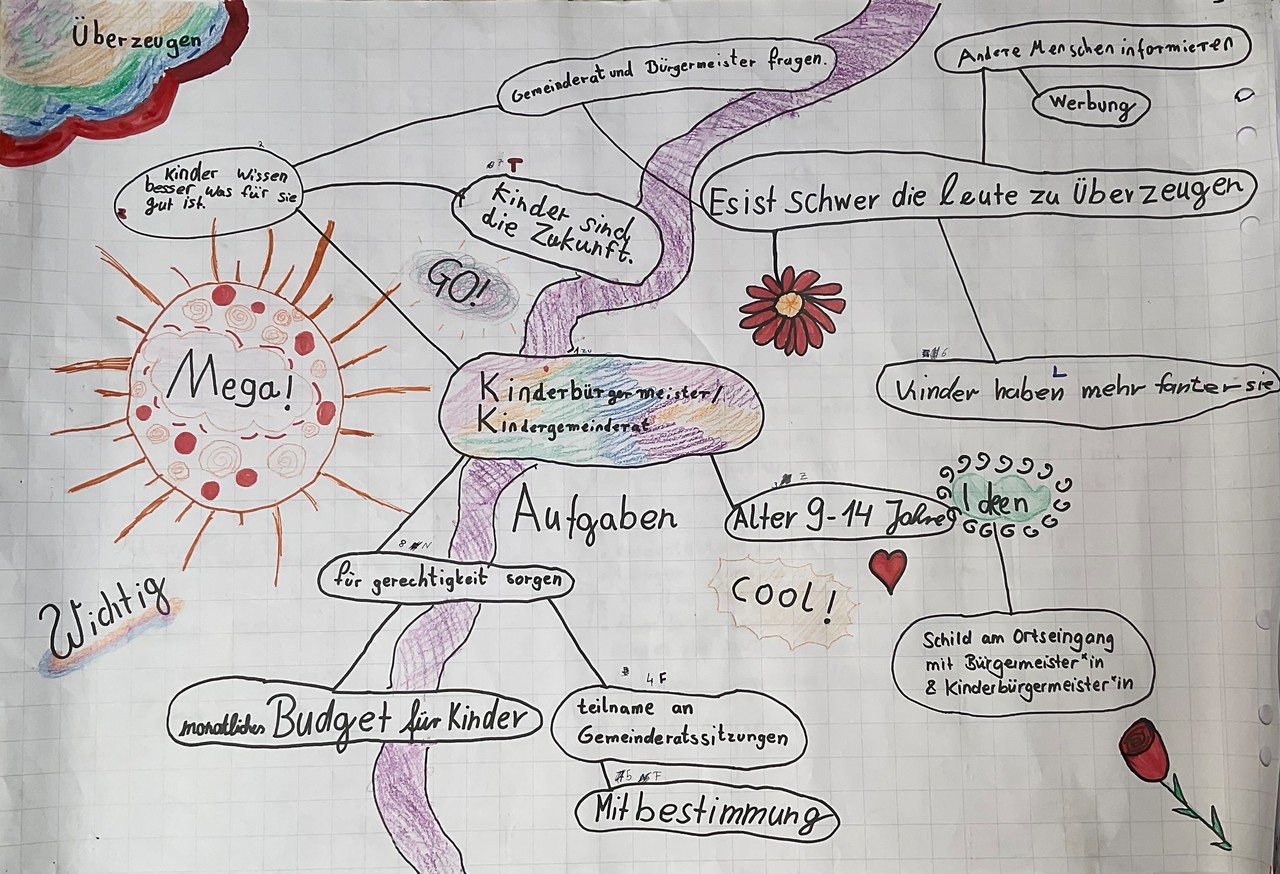 Überzeugen
Gemeinderat und Bürgermeister fragen.
Andere Menschen informieren
Werbung
Kinder wissen
besser was für sie
gut ist.
Kinder sind
die Zukunft.
Es ist schwer die leute zu Überzeugen
GO!
Mega!
Kinderbürgermeister/
Kindergemeinderat
Kinder haben mehr fantersie
Aufgaben
Alter 9-14 Jahre
Ideen
für gerechtigkeit sorgen
COOL!
Wichtig
Schild am Ortseingang
mit Bürgermeister*in
& Kinderbürgermeister*in
monatliches Budget für Kinder
teilname an
Gemeinderatssitzungen
Mitbestimmung